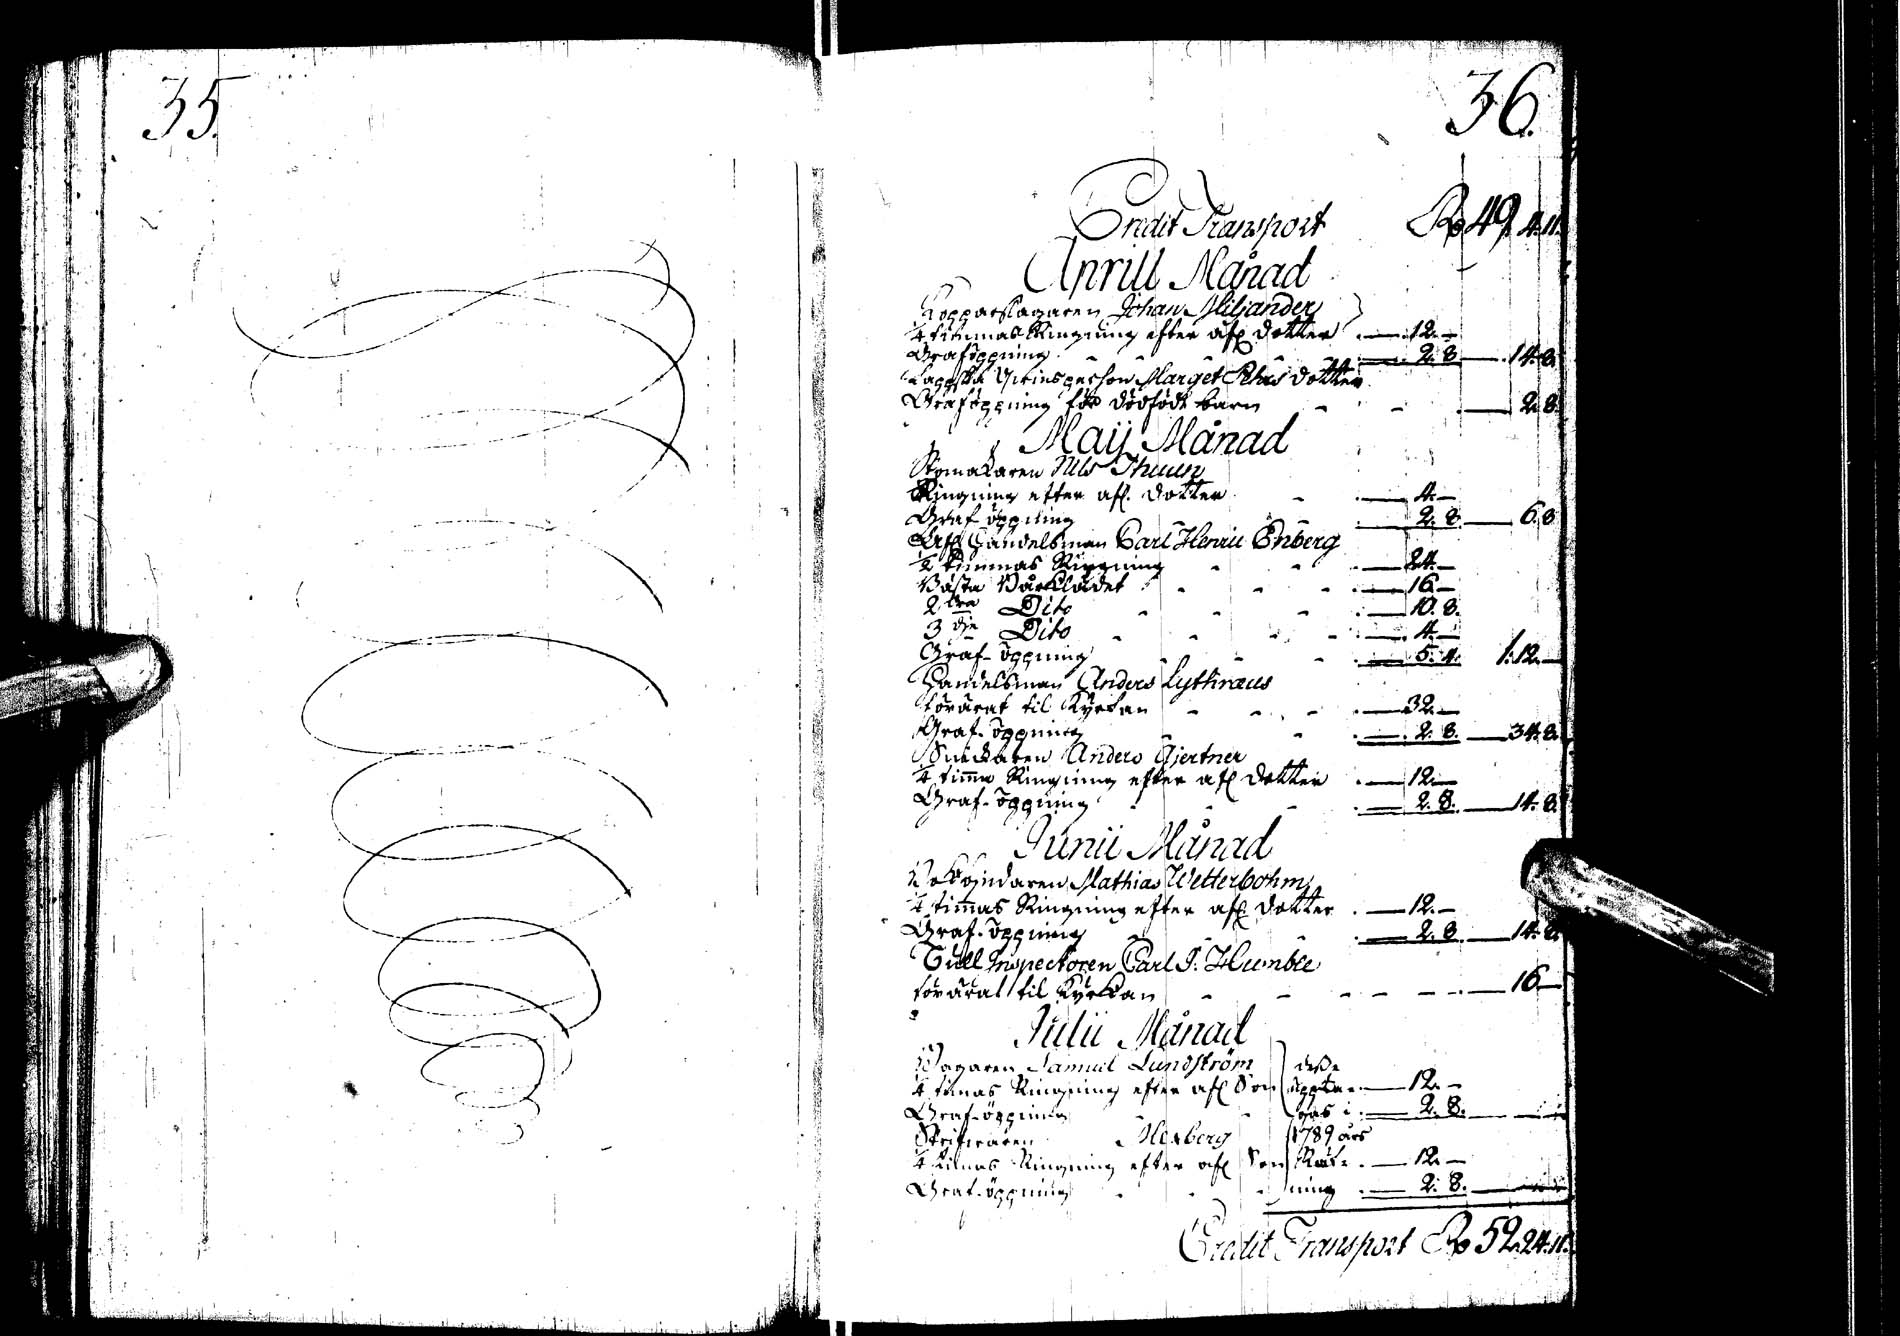 35.
36.
Credit Transport Rd 49. 4. 11.
Aprill Månad
Kopparslagaren Johan Miljander
1/4 timmas Ringning efter afl. dotter 12. —
Graföppning 2. 8. — 14. 8.
Marget Pehrs dotter
Graföppning för dödfödt barn 2. 8.
Maij Månad
Skomakaren Nils Thuun
Ringning efter afl. dotter 4. —
Graf-öppning 2. 8. — 6. 8
Afl. Handelsman Carl Henric Enberg
1/2 timmas Ringning 24. —
Bästa Bårklädet 16. —
2dra Dito 10. 8.
3dje Dito 4. —
Graf-öppning 5. 4. 1. 12. —
Handelsman Anders Lythræus
förärat til Kyrkan 32. —
Graf-öppning 2. 8. — 34. 8.
Snickaren Anders Gjertner
1/4 timme Ringning efter afl. dotter 12. —
Graf-öppning 2. 8. — 14. 8.
Junii Månad
Mathias Wetterbohm
1/4 timmas Ringning efter afl. dotter 12. —
Graf-öppning 2. 8. — 14. 8.
Tull Inspectoren Carl J. Humble
förärat til Kyrkan 16. —
Julii Månad
Samuel Lundström desse
1/4 timas Ringning efter afl. Son upptagas i 12. —
Graf-öppning 2. 8.
Mexberg 1789 års
1/4 timas Ringning efter afl. Son Räkning 12. —
Graf-öppning 2. 8.
Credit Transport Rd 52. 24. 11.